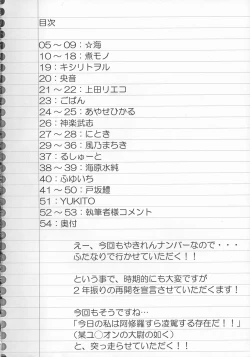 目次
05～09：☆海
10～18：煮モノ
19：キシリトヲル
20：央音
21～22：上田リエコ
23：ごばん
24～25：あやせひかる
26：神楽武志
27～28：にとき
29～36：風乃まちき
37：るしゅーと
38～39：海原水純
40：ふゆいち
41～50：戸坂鱧
51：YUKITO
52～53：執筆者様コメント
54：奥付
えー、今回もやきれんナンバーなので・・・
ふたなりで行かせていただく！！
という事で、時期的にも大変ですが
２年振りの再開を宣言させていただきます！
今回もそうですね…
「今日の私は阿修羅すら凌駕する存在だ！！」
（某ユ◯オンの大尉の如く）
と、突っ走らせていただく！！